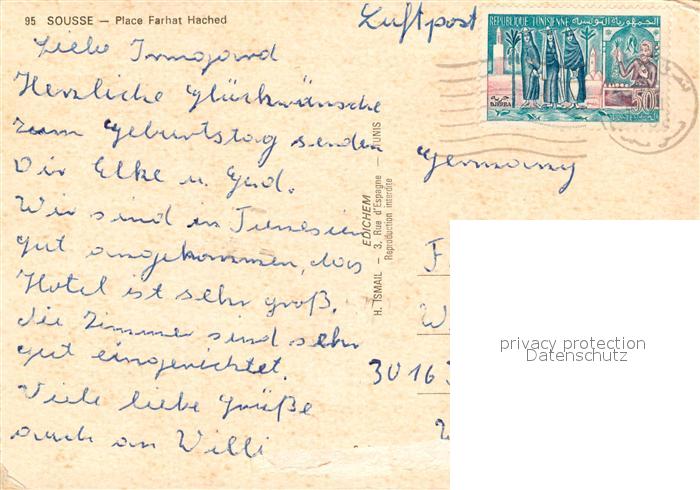 95 SOUSSE — Place Farhat Hached
Luftpost
REPUBLIQUE TUNISIENNE الجمهورية التونسية
جربة
DJERBA
50
Liebe Irmgard
Herzliche Glückwünsche
zum Geburtstag senden
Dir Elke u. Gerd.
Wir sind in Tunesien
gut angekommen, das
Hotel ist sehr groß,
die Zimmer sind sehr
gut eingerichtet.
Viele liebe Grüße
auch an Willi
H. ISMAIL — 3, Rue d'Espagne — TUNIS
EDICHEM
Reproduction interdite
Germany
F
W
3016
privacy protection
Datenschutz